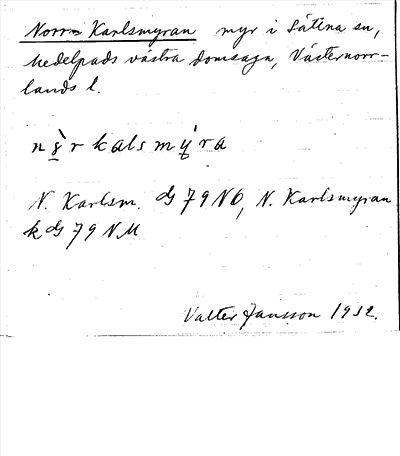 Norr- Karlsmyran myr i Sättna sn,
Medelpads västra domsaga, Västernorr-
lands l.
N. Karlsm. dG 79 NO, N. Karlsmyran
k dG 79 NM
Valter Jansson 1932.